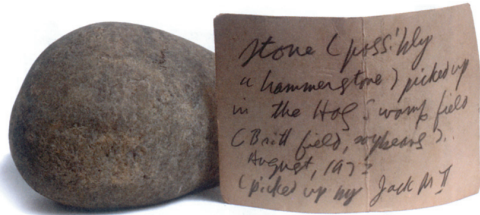 Stone (possibly
a hammerstone) picked up
in the Hog Swamp field
(Britt field, soybeans).
August, 197
(picked up by Jack M II